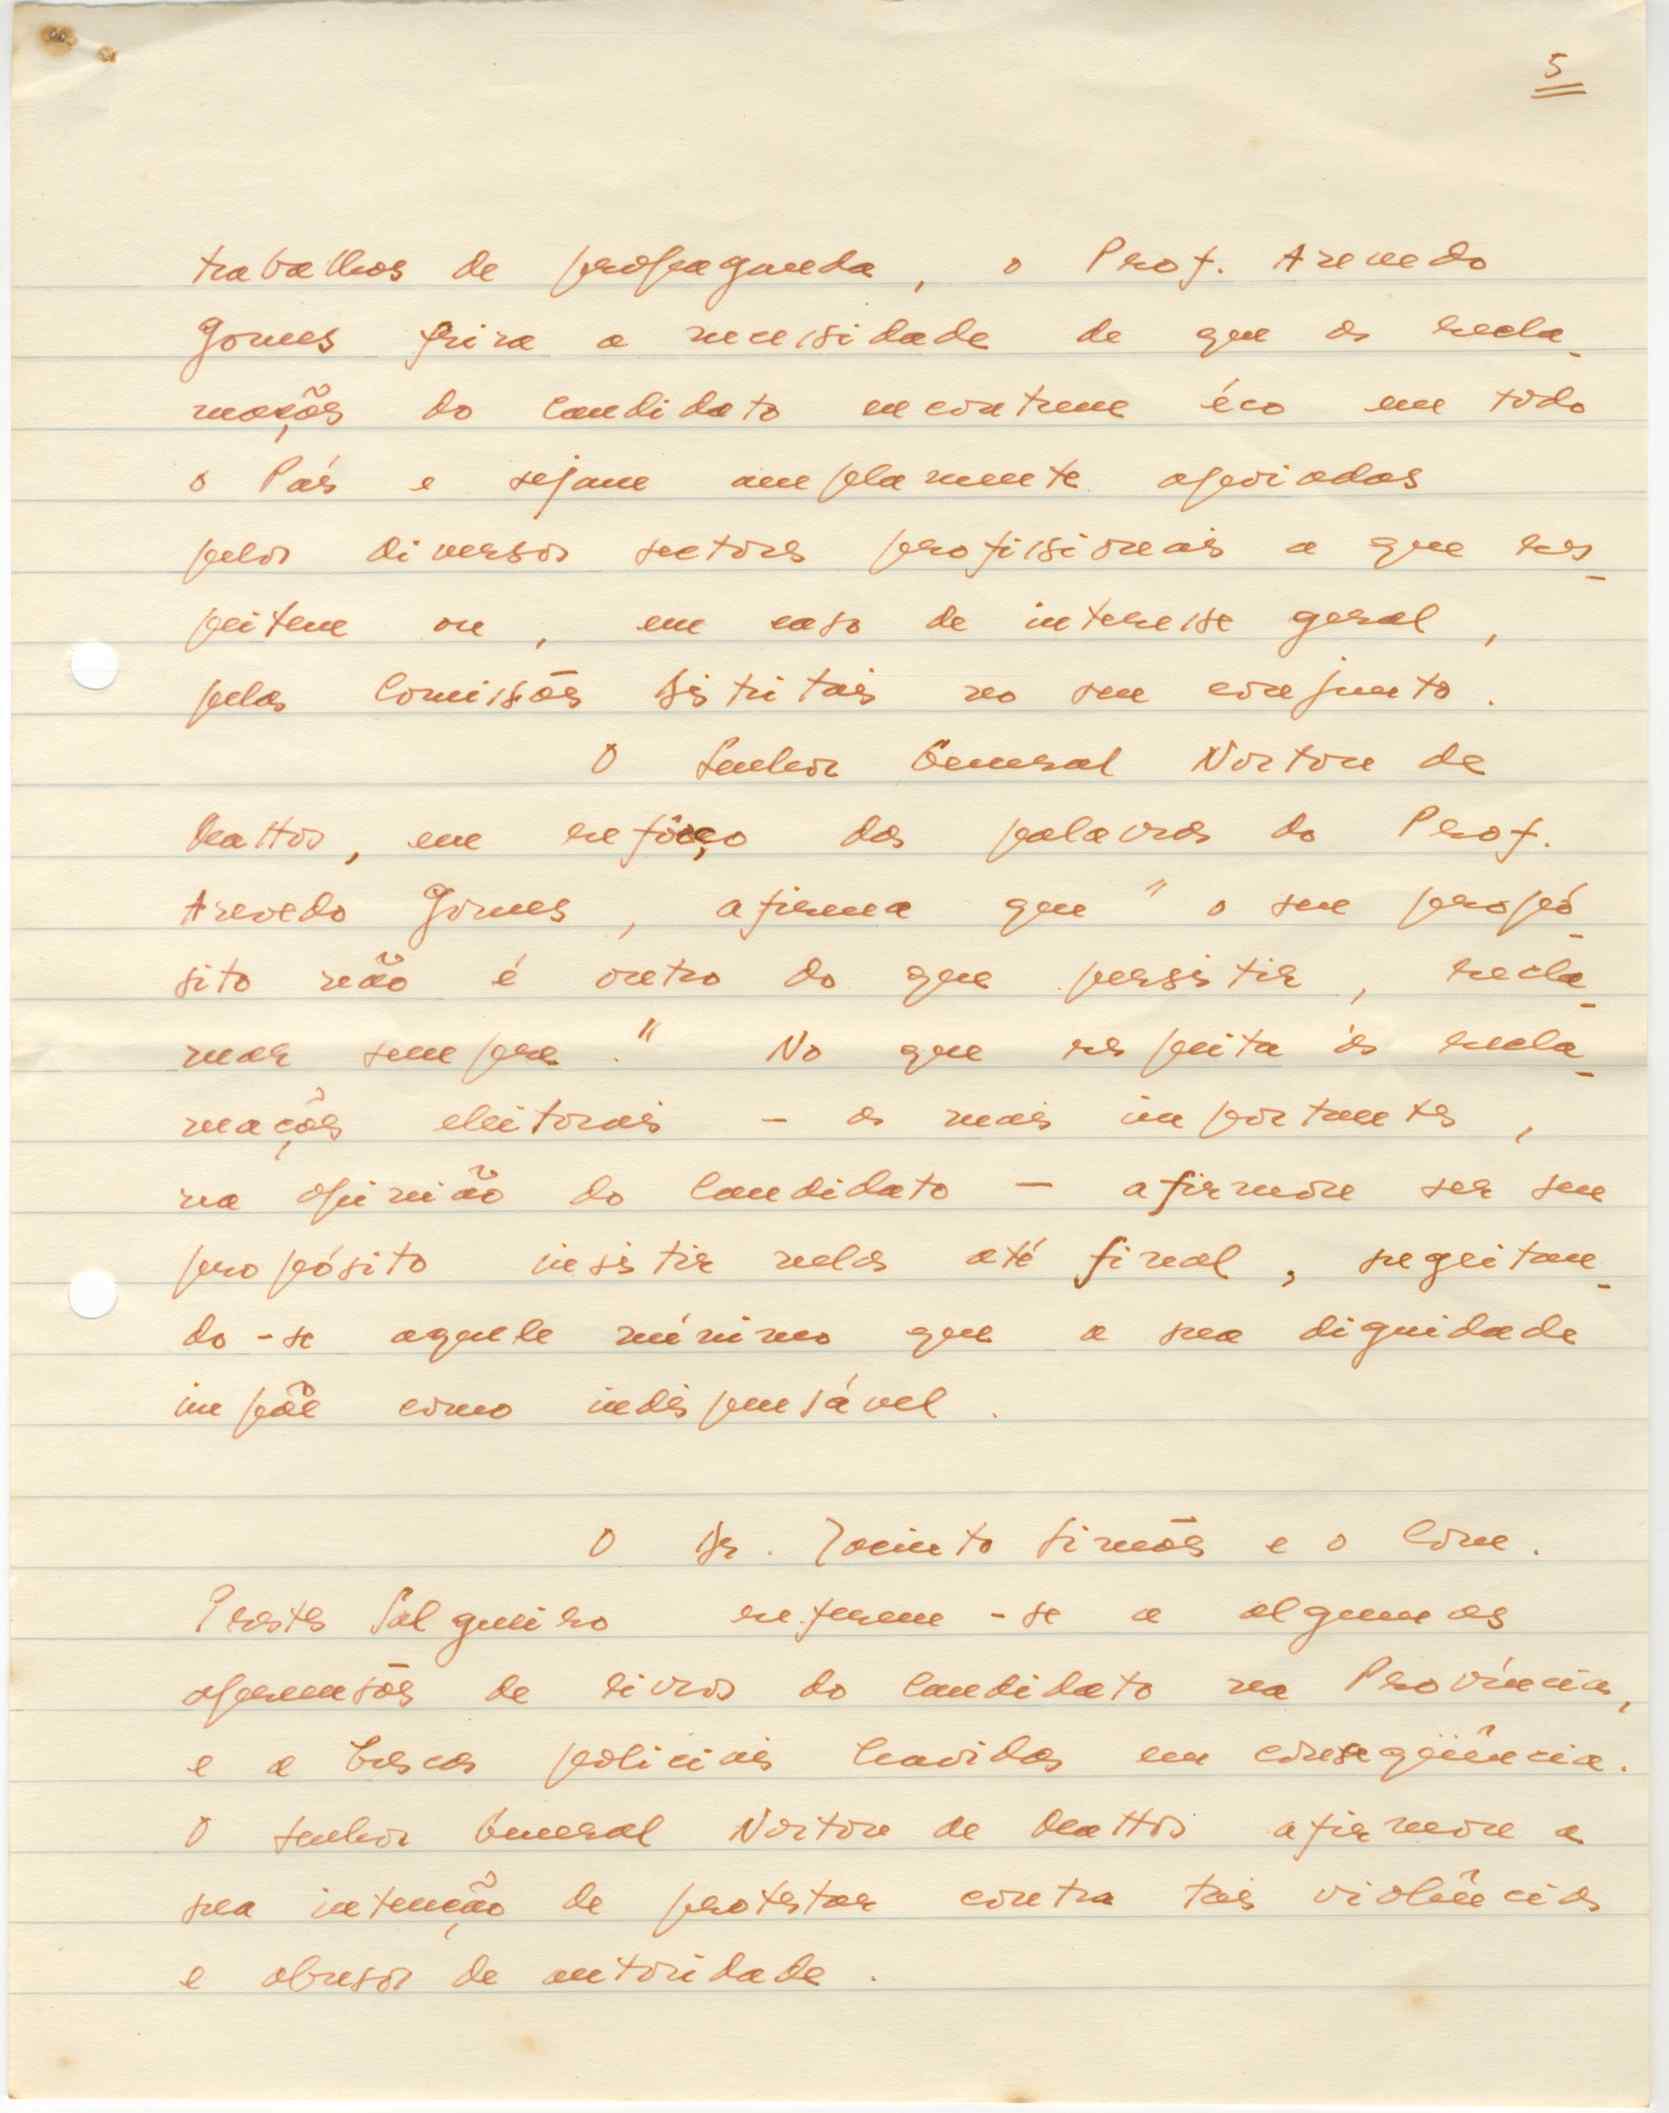 5
trabalhos de propaganda, o Prof. Azevedo
Gomes friza a necessidade de que as recla-
mações do candidato encontrem éco em todo
o País e sejam amplamente apoiadas
pelos diversos sectores profissionais a que res-
peitem ou, em caso de interesse geral,
pelas Comissões Distritais no seu conjunto.
O Senhor General Norton de
Mattos, em refôrço das palavras do Prof.
Azevedo Gomes, afirma que "o seu propó-
sito não é outro do que persistir, recla-
mar sempre." No que respeita às recla-
mações eleitorais - as mais importantes,
na opinião do Candidato - afirmou ser seu
propósito insistir nelas até final, regeitan-
do-se aquele mínimo que a sua dignidade
impõe como indispensável.
O Dr. Jacinto Simões e o Com.
Prestes Salgueiro referem-se a algumas
apreensões de livros do Candidato na Província,
e a buscas policiais havidas em conseqüência.
O Senhor General Norton de Mattos afirmou a
sua intenção de protestar contra tais violências
e abusos de autoridade.